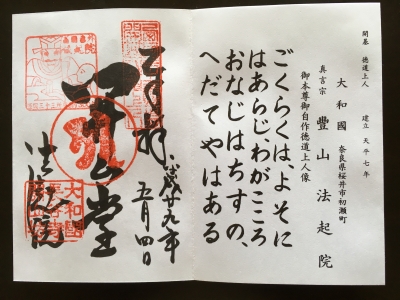 開基 徳道上人 建立 天平七年
大和國 奈良県桜井市初瀬町
真言宗 豐山法起院
御本尊御自作徳道上人像
ごくらくは、よそに
はあらじ、わがこころ
おなじはちすの、
へだてやはある
奉拝 平成廿九年
五月四日
開山堂
法起院